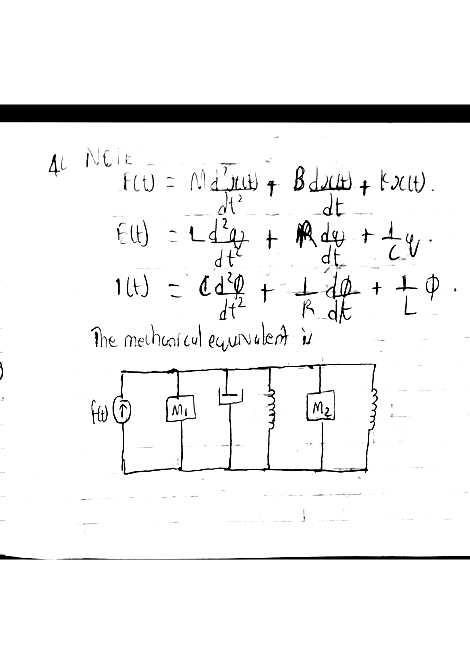 4c NOTE
F(t) = M d²x(t)/dt² + B dx(t)/dt + Kx(t).
E(t) = L d²q/dt² + R dq/dt + 1/C q.
I(t) = C d²Φ/dt² + 1/R dΦ/dt + 1/L Φ.
The mechanical equivalent is
f(t) M₁ M₂